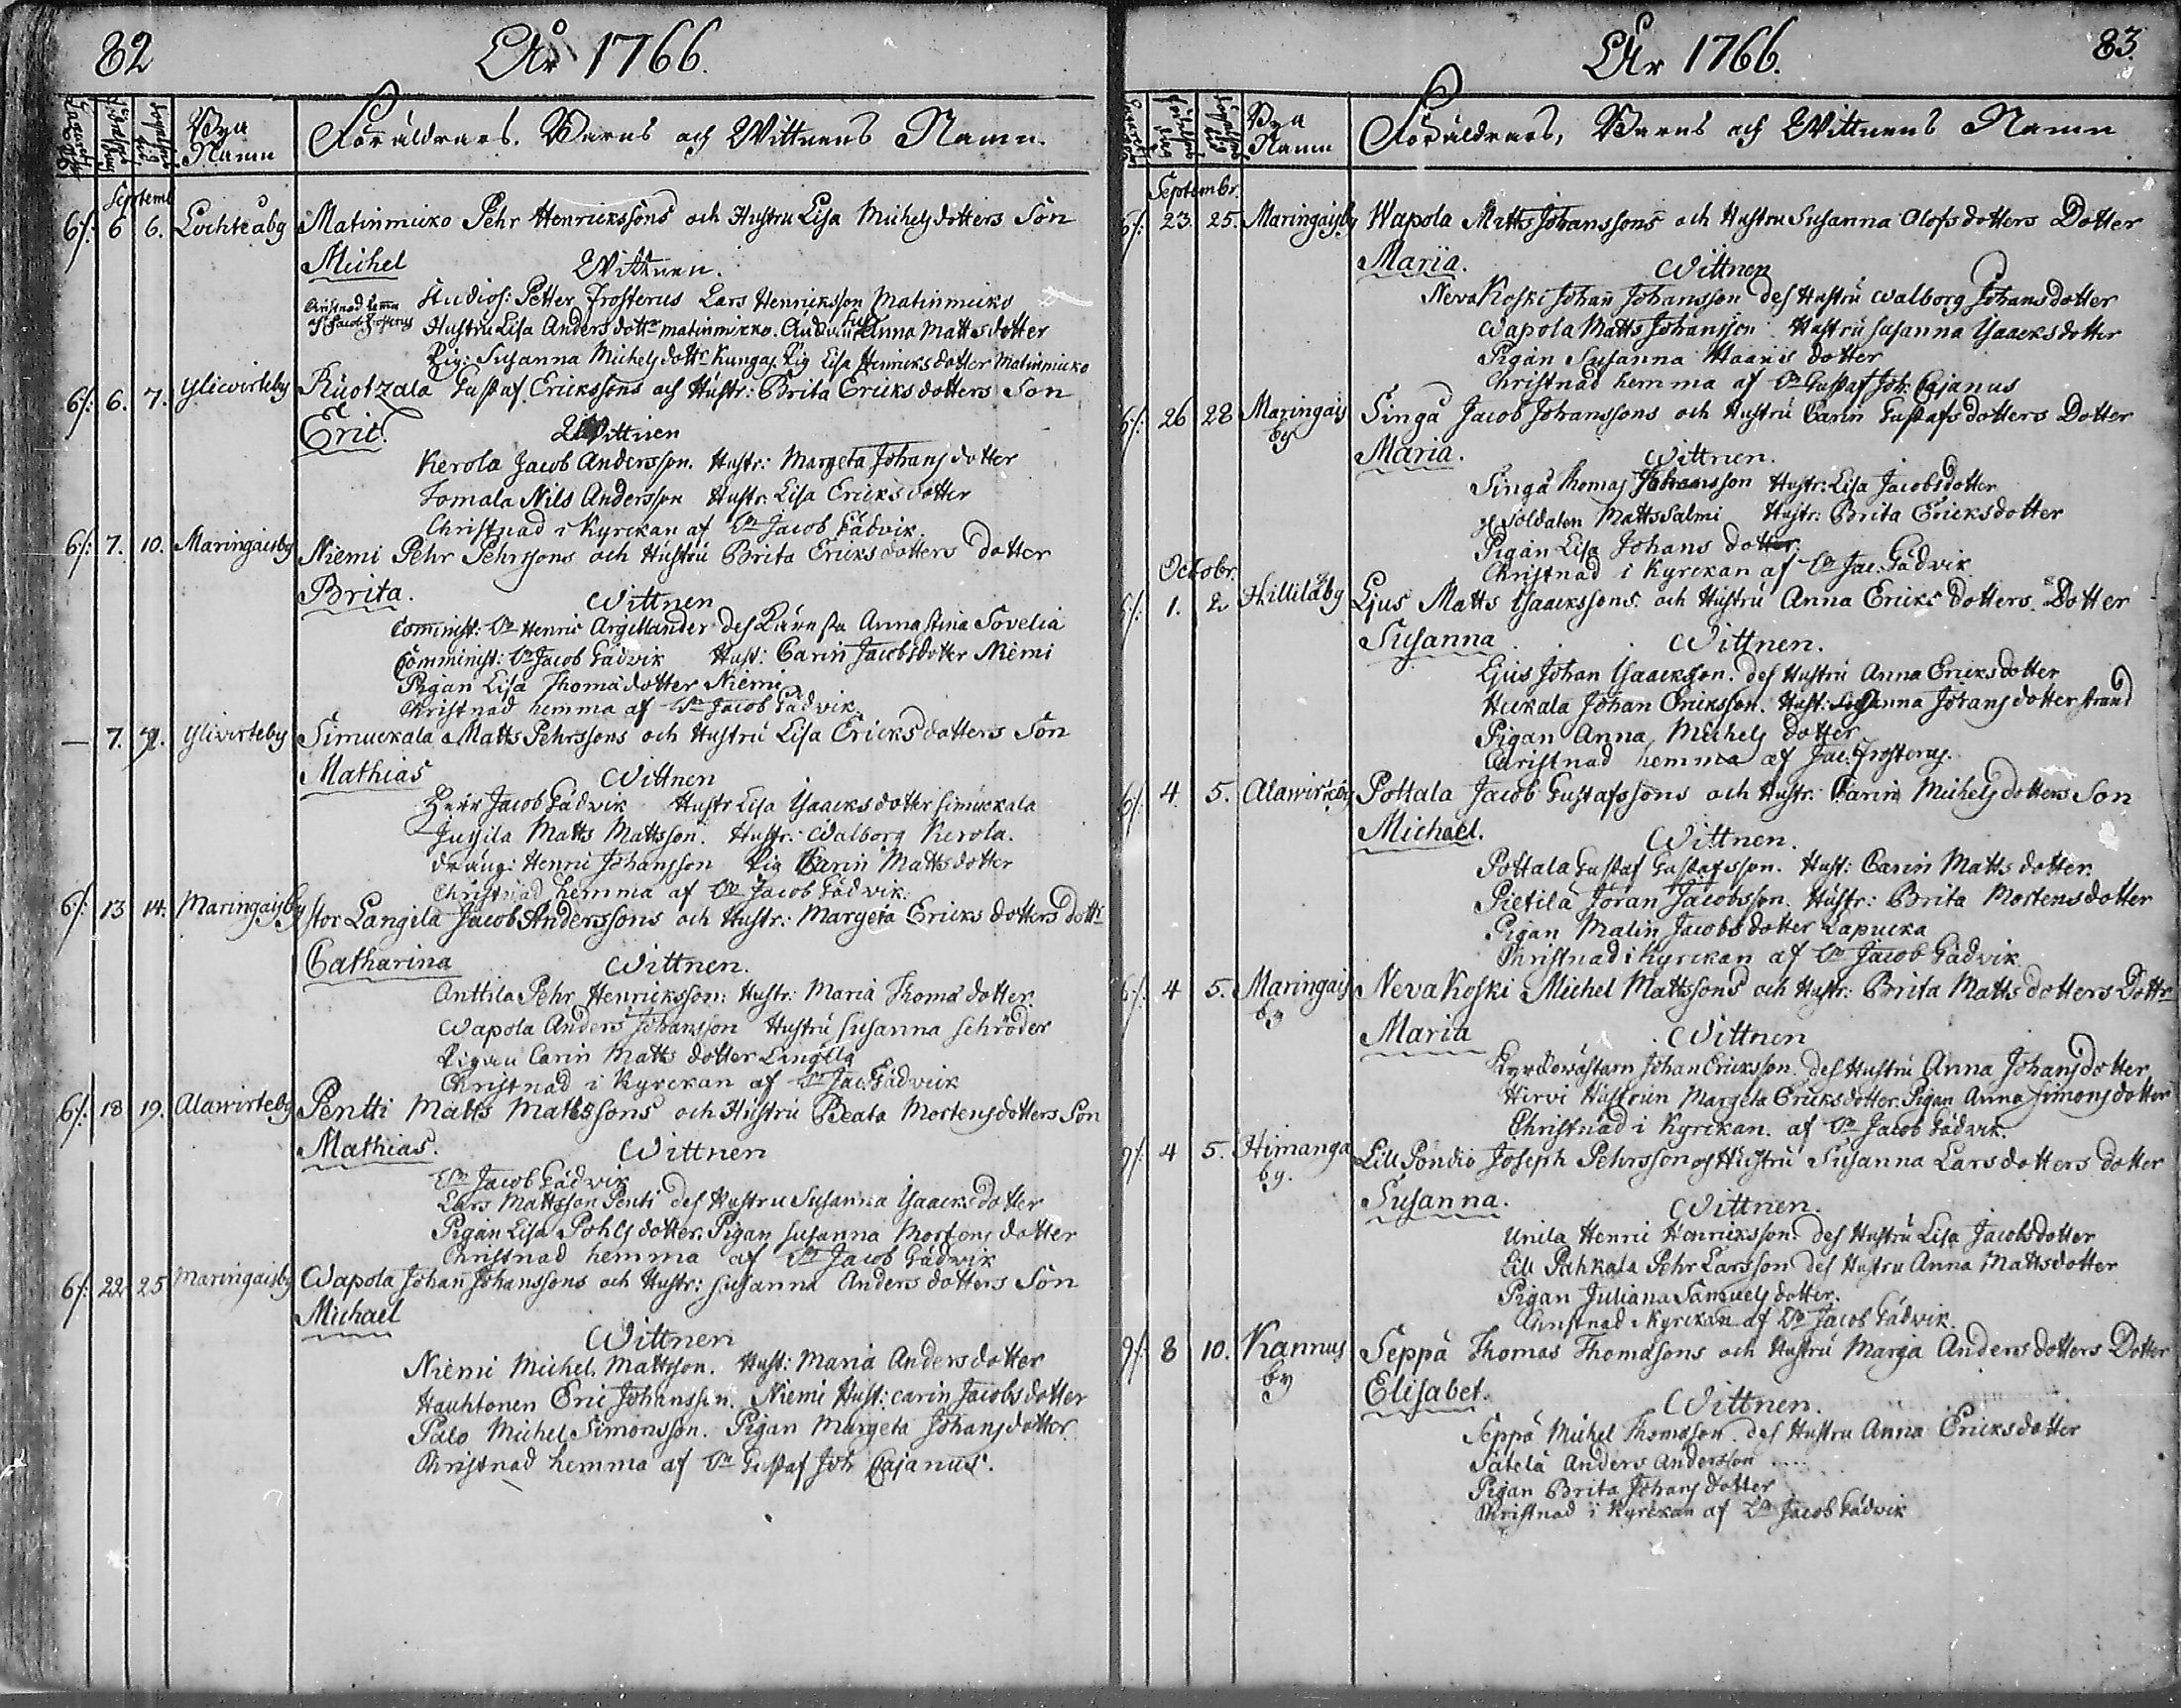 82
År 1766.
Bya
Namn
Föräldrars, Barns och Wittnens Namn.
Septemb
6/: 6 6. Lochteåby Matinmicko Pehr Henrickssons och Hustru Lisa Michelsdotters Son
Michel Wittnen.
Studios: Petter Frosterus Lars Henricksson Matinmicko
Christnad hemma
af Jacob Frosterus
Hustru Lisa Anders dottr matinmikko. Anna Mattsdotter
Pig: Susanna Michelsdottr Kungas. Pig Lisa Henricksdotter Matinmicko
6/: 6. 7. Yliwirteby Ruotzala Gustaf Erickssons och Hustr: Brita Ericksdotters Son
Eric. Wittnen
Kerola Jacob Andersson. Hustr: Margeta Johansdotter
Tomala Nils Andersson Hustr: Lisa Ericksdotter
Christnad i Kyrckan af Dn Jacob Gådvik.
6/: 7. 10. Maringaisby Niemi Pehr Pehrssons och Hustru Brita Ericksdotters dotter
Brita. Wittnen
Comminist: Dn Henric Argillander des Käresta Anna Stina Sovelia
Comminist: Dn Jacob Gådvik Hust: Carin Jacobsdotter Niemi
Pigan Lisa Thomædotter Niemi
Christnad hemma af Dn Jacob Gådvik.
— 7. Ylivirteby Simuckala Matts Pehrssons och Hustru Lisa Ericksdotters Son
Mathias Wittnen
Herr Jacob Gådvik Hustr Lisa Ysaacksdotter Simukkala
Jussila Matts Mattsson. Hustr: Walborg Kerola.
dräng: Henric Johansson Pig Carin Mattsdotter
Christnad hemma af Dn Jacob Gådvik.
6/: 13 14. Maringaisby Stor Langila Jacob Anderssons och Hustr: Margeta Ericksdotters dottr
Catharina Wittnen.
Anttila Pehr Henricksson: Hustr: Maria Thomædotter.
Wapola Anders Johansson Hustru Susanna Schröder
Pigan Carin Mattsdotter Langila
Christnad i Kyrckan af Dn Jac: Gådveik
6/: 18 19. Alawirteby Pentti Matts Mattssons och Hustru Beata Mortensdotters Son
Mathias. Wittnen
Dn Jacob Gådvik
Lars Mattsson Penti des Hustru Susanna Ysaacksdotter
Pigan Lisa Pohlsdotter. Pigan Susanna Mortensdotter
Christnad hemma af Dn Jacob Gådwik
6/: 22 25 Maringaisby Wapola Johan Johanssons och Hustr: Susanna Andersdotters Son
Michael
Wittnen
Niemi Michel Mattsson. Hust: Maria Andersdotter
Hauhtonen Eric Johansson. Niemi Hust: Carin Jacobsdotter
Palo Michel Simonsson. Pigan Margeta Johansdotter
Christnad hemma af Dn Gustaf Joh Cajanus.
År 1766.
83.
Bya
Namn
Föräldrars, Barns och Wittnens Namn
Septembr.
6/: 23. 25. Maringaisby Wapola Matts Johanssons och Hustru Susanna Olofsdotters Dotter
Maria. Wittnen
Neva Koski Johan Johansson des Hustru Walborg Johansdotter
Wapola Matts Johansson Hustru Susanna Ysaacksdotter
Pigan Susanna dotter
Christnad hemma af Dn Gustaf Joh: Cajanus
6/: 26 28 Maringais
by
Singa Jacob Johanssons och Hustru Carin Gustafsdotters Dotter
Maria. Wittnen.
Singa Thomas Johansson Hustr: Lisa Jacobsdotter
Soldaten Matts Salmi Hustr: Brita Ericksdotter
Pigan Lisa Johansdotter
Christnad i Kyrckan af Dn Jac: Gådvik
Octobr.
6/: 1. 2 Hilliläby Ljus Matts Ysaackssons och Hustru Anna Ericks dotters Dotter
Susanna Wittnen.
Ljus Johan Ysaacksson. des Hustru Anna Ericksdotter
Huckala Johan Ericksson. Hust: Anna Johansdotter Strand
Pigan Anna Michelsdotter
Christnad hemma af Jac: Frosterus.
6/: 4 5. Alawirteby Pottala Jacob Gustafssons och Hustr: Carin Michelsdotters Son
Michael. Wittnen.
Pottala Gustaf Gustafsson. Hust: Carin Mattsdotter.
Pietilä Jöran Jacobsson. Hustr: Brita Mortensdotter
Pigan Malin Jacobsdotter Lapucka
Christnad i Kyrckan af Dn Jacob Gådvik
6/: 4 5. Maringais
by
Neva Koski Michel Mattssons och Hustr: Brita Mattsdotters Dottr
Maria Wittnen
Kyrckowästarn Johan Ericksson. des Hustru Anna Johansdotter
Hirvi Hustrun Margeta Ericksdotter. Pigan Anna Simonsdotter
Christnad i Kyrckan af Dn Jacob Gådvik.
9/: 4 5. Himanga
by.
Lill Pöndiö Joseph Pehrsson och Hustru Susanna Larsdotters dotter
Susanna. Wittnen.
Unila Henric Henricksson des Hustru Lisa Jacobsdotter
Lill Pahkala Pehr Larsson des Hustru Anna Mattsdotter
Pigan Juliana Samuelsdotter.
Christnad i Kyrckan af Dn Jacob Gådvik.
9/: 8 10. Kannus
by
Seppä Thomas Thomæsons och Hustru Marja Andersdotters Dotter
Elisabet. Wittnen.
Seppä Michel Thomæson des Hustru Anna Ericksdotter
Anders Andersson .....
Pigan Brita Johansdotter
Christnad i Kyrckan af Dn Jacob Gådvik